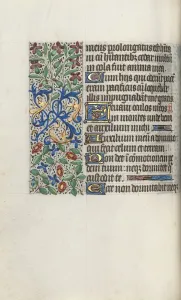 meus prolongatus est habi
cum habitantibus cedar multum
incola fuit anima mea
Cum hiis qui oderunt pacem
eram pacificus cum loquebar
illis impugnabant me gratis
levavi oculos meos
In montes unde ve
niet auxilium michi
Auxilium meum a domi
no qui fecit celum et terram
Non det in commotionem pe
dem tuum neque dormitet
custodit te
Ecce non dormitabit